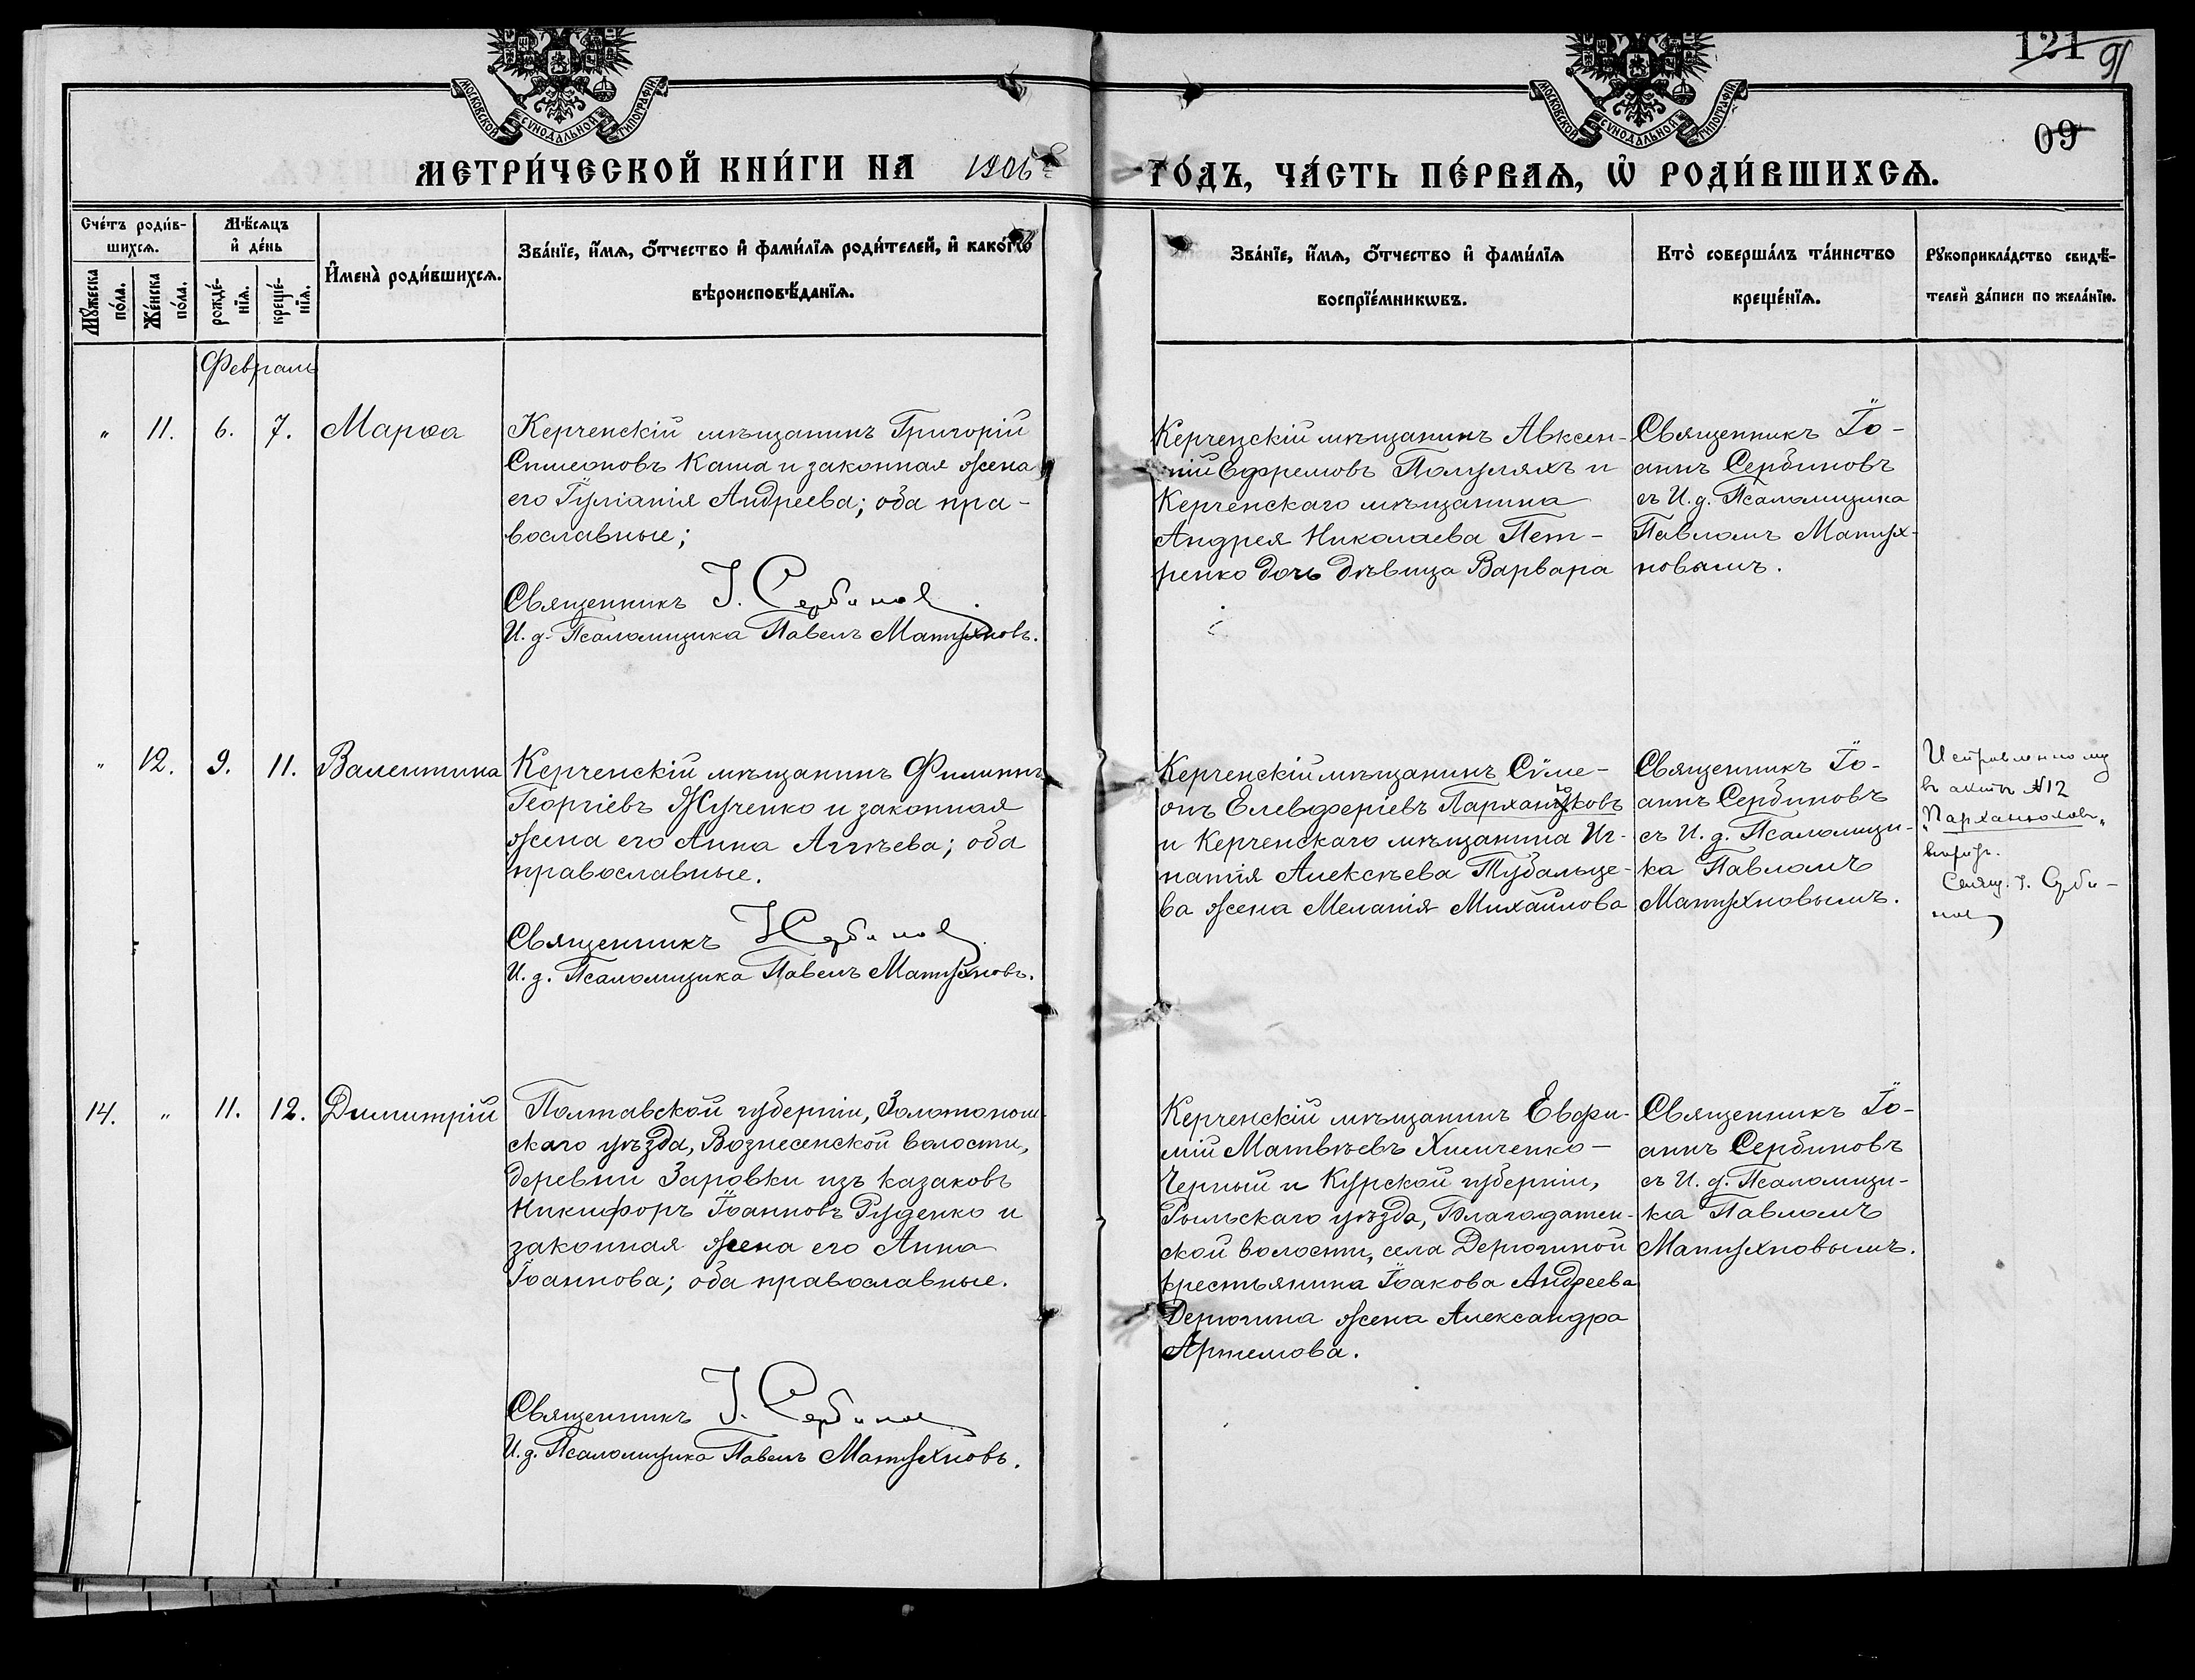 121 91
09
МОСКОВСКОЙ СѴНОДАЛЬНОЙ ТИПОГРАФІИ
МОСКОВСКОЙ СѴНОДАЛЬНОЙ ТИПОГРАФІИ
МЕТРИ́ЧЕСКОЙ КНИ́ГИ НА 1906 ГО́ДЪ, ЧА́СТЬ ПЕ́РВАѦ, Ѡ҆ РОДИ́ВШИХСѦ.
Сче́тъ роди́вшихсѧ.
Мꙋ́жеска по́ла.
Же́нска по́ла.
Мѣ́сѧцъ и҆ де́нь
рожде́нїѧ.
креще́нїѧ.
И҆мена̀ роди́вшихсѧ.
Зва́нїе, и҆́мѧ, ѻ҆́тчество и҆ фами́лїѧ роди́телей, и҆ како́гѡ
вѣроисповѣ́данїѧ.
Зва́нїе, и҆́мѧ, ѻ҆́тчество и҆ фами́лїѧ
воспрїе́мникѡвъ.
Кто̀ соверша́лъ та́инство
креще́нїѧ.
Рꙋкоприкла́дство свидѣ́-
телей за́писи по жела́нїю.
Февраль
" 11. 6. 7. Марѳа
Керченскій мѣщанинъ Григорій
Симеоновъ Каша и законная жена
его Іуліанія Андреева; оба пра-
вославные;
Священникъ І. Сербинов
И. д. Псаломщика Павелъ Матухновъ.
Керченскій мѣщанинъ Авксен-
тій Ефремовъ Полуляхъ и
Керченскаго мѣщанина
Андрея Николаева Пет-
ренко дочь дѣвица Варвара
Священникъ Іо-
аннъ Сербиновъ
съ И. д. Псаломщика
Павломъ Матух-
новымъ.
" 12. 9. 11. Валентина
Керченскій мѣщанинъ Филиппъ
Георгіевъ Жученко и законная
жена его Анна Аггѣева; оба
православные.
Священникъ І Сербинов
И. д. Псаломщика Павелъ Матухновъ.
Керченскій мѣщанинъ Сѵме-
онъ Елевферіевъ Пархан ковъ
и Керченскаго мѣщанина Иг-
натія Алексѣева Тубальце-
ва жена Меланія Михайлова
Священникъ Іо-
аннъ Сербиновъ
съ И. д. Псаломщи-
ка Павломъ
Матухновымъ.
Исправленному
въ актѣ №12
"Пархан "
вѣрить.
Свящ. І. Серби-
нов
14. " 11. 12. Димитрій
Полтавской губерніи, Золотонош-
скаго уѣзда, Вознесенской волости,
деревни Заровки изъ казаковъ
Никифоръ Іоанновъ Руденко и
законная жена его Анна
Іоаннова; оба православные.
Священникъ І. Сербинов
И. д. Псаломщика Павелъ Матухновъ.
Керченскій мѣщанинъ Евфи-
мій Матвѣевъ Химченко-
Черный и Курской губерніи,
Рыльскаго уѣзда, Благодатен-
ской волости, села Дерюгиной
крестьянина Іоакова Андреева
Дерюгина жена Александра
Артемова.
Священникъ Іо-
аннъ Сербиновъ
съ И. д. Псаломщи-
ка Павломъ
Матухновымъ.